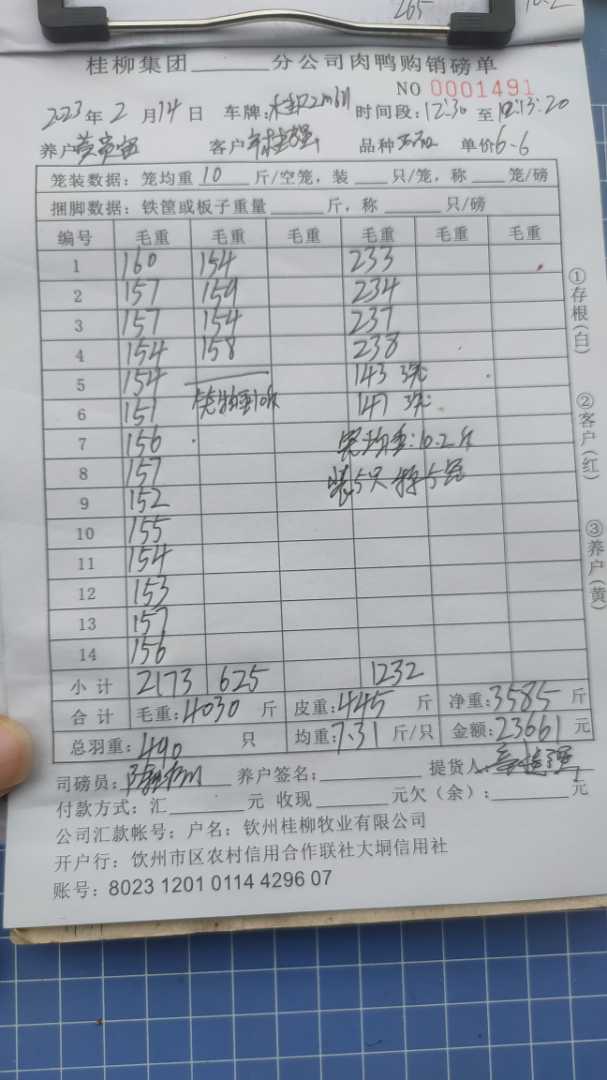 265
桂柳集团______分公司肉鸭购销磅单
NO 0001491
2023年2月14日 车牌: 时间段:12:30至 13:20
养户 客户 品种 单价6-6
笼装数据:笼均重10斤/空笼,装___只/笼,称___笼/磅
捆脚数据:铁筐或板子重量______斤,称______只/磅
编号 毛重 毛重 毛重 毛重 毛重 毛重
1 160 154 233
2 157 159 234
3 157 154 237
4 154 158 238
5 154 143 3笼
6 151 笼 10斤 147 3笼
7 156 笼均重:10.2斤
8 157 装5只 称5笼
9 152
10 155
11 154
12 153
13 157
14 156
小计 2173 625 1232
合计 毛重:4030斤 皮重:445斤 净重:3585斤
总羽重:490只 均重:7.31斤/只 金额:23661元
司磅员: 养户签名: 提货人:
付款方式:汇______元 收现______元欠(余):______元
公司汇款帐号:户名:钦州桂柳牧业有限公司
开户行:饮州市区农村信用合作联社大垌信用社
账号:8023 1201 0114 4296 07
①存根(白)
②客户(红)
③养户(黄)